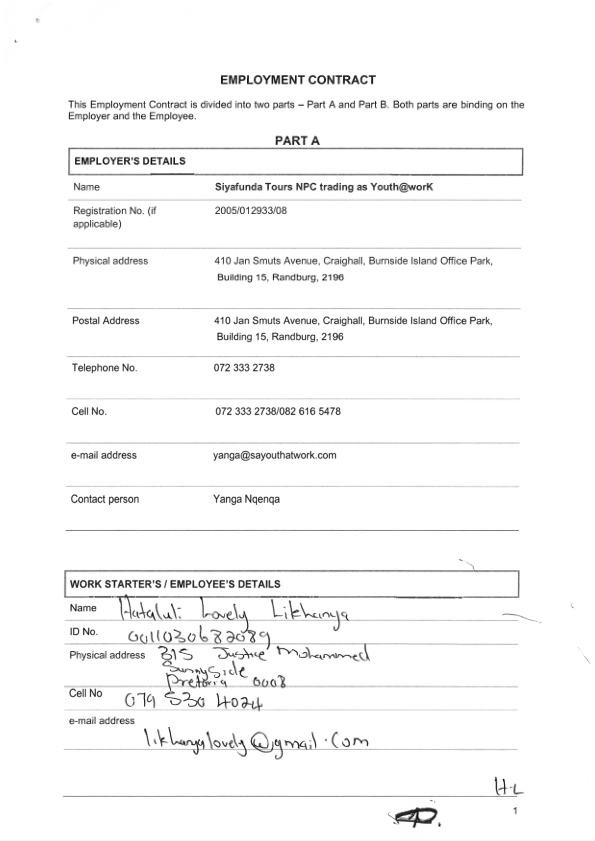 EMPLOYMENT CONTRACT
This Employment Contract is divided into two parts – Part A and Part B. Both parts are binding on the
Employer and the Employee.
PART A
EMPLOYER'S DETAILS
Name Siyafunda Tours NPC trading as Youth@worK
Registration No. (if 2005/012933/08
applicable)
Physical address 410 Jan Smuts Avenue, Craighall, Burnside Island Office Park,
Building 15, Randburg, 2196
Postal Address 410 Jan Smuts Avenue, Craighall, Burnside Island Office Park,
Building 15, Randburg, 2196
Telephone No. 072 333 2738
Cell No. 072 333 2738/082 616 5478
e-mail address yanga@sayouthatwork.com
Contact person Yanga Nqenqa
WORK STARTER'S / EMPLOYEE'S DETAILS
Name Lovely Likhanya
ID No. 0011030682089
Physical address 315 Justice Mohammed
Sunnyside
Pretoria 0008
Cell No 079 530 4024
e-mail address
likhanyalovely@gmail.com
H.L
1